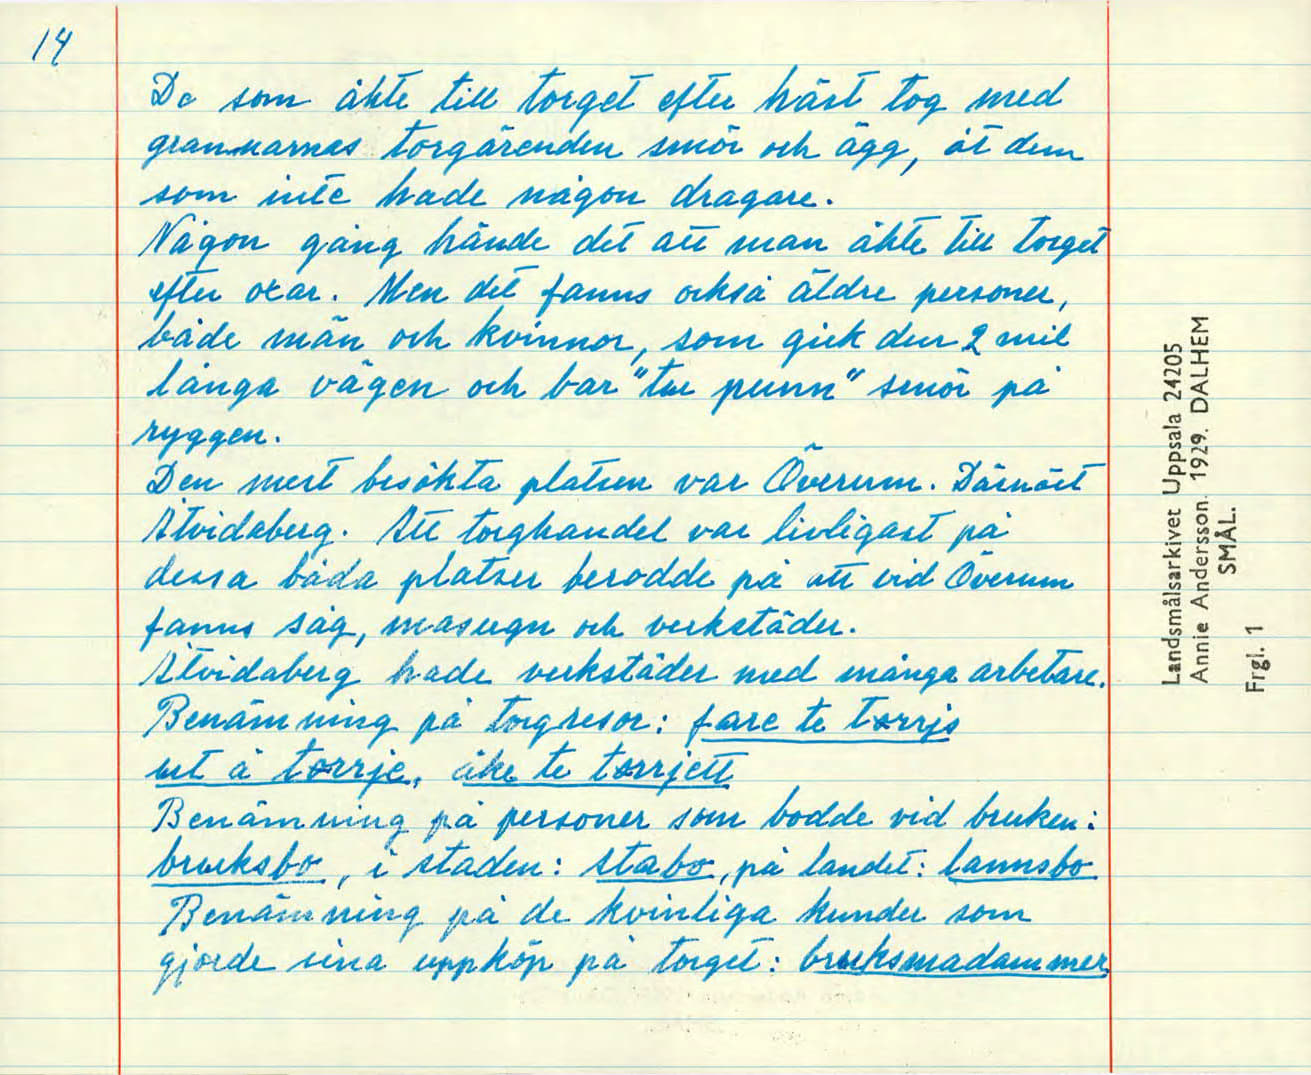 14
De som åkte till torget efter häst tog med
grannarnas torgärenden smör och ägg, åt dem
som inte hade någon dragare.
Någon gång hände det att man åkte till torget
efter oxar. Men det fanns också äldre personer,
både män och kvinnor, som gick den 2 mil
långa vägen och bar "tue punn" smör på
ryggen.
Den mest besökta platsen var Överum. Därnäst
Åtvidaberg. Att torghandel var livligast på
dessa båda platser berodde på att vid Överum
fanns såg, masugn och verkstäder.
Åtvidaberg hade verkstäder med många arbetare.
Benämning på torgresor: fare te torrjs
ut å torrje, åke te torrjett
Benämning på personer som bodde vid bruken:
bruksbo, i staden: stabo, på landet: lannsbo
Benämning på de kvinliga kunder som
gjorde sina uppköp på torget: bruksmadammer
Landsmålsarkivet Uppsala 24205
Annie Andersson. 1929. DALHEM
SMÅL.
Frgl. 1